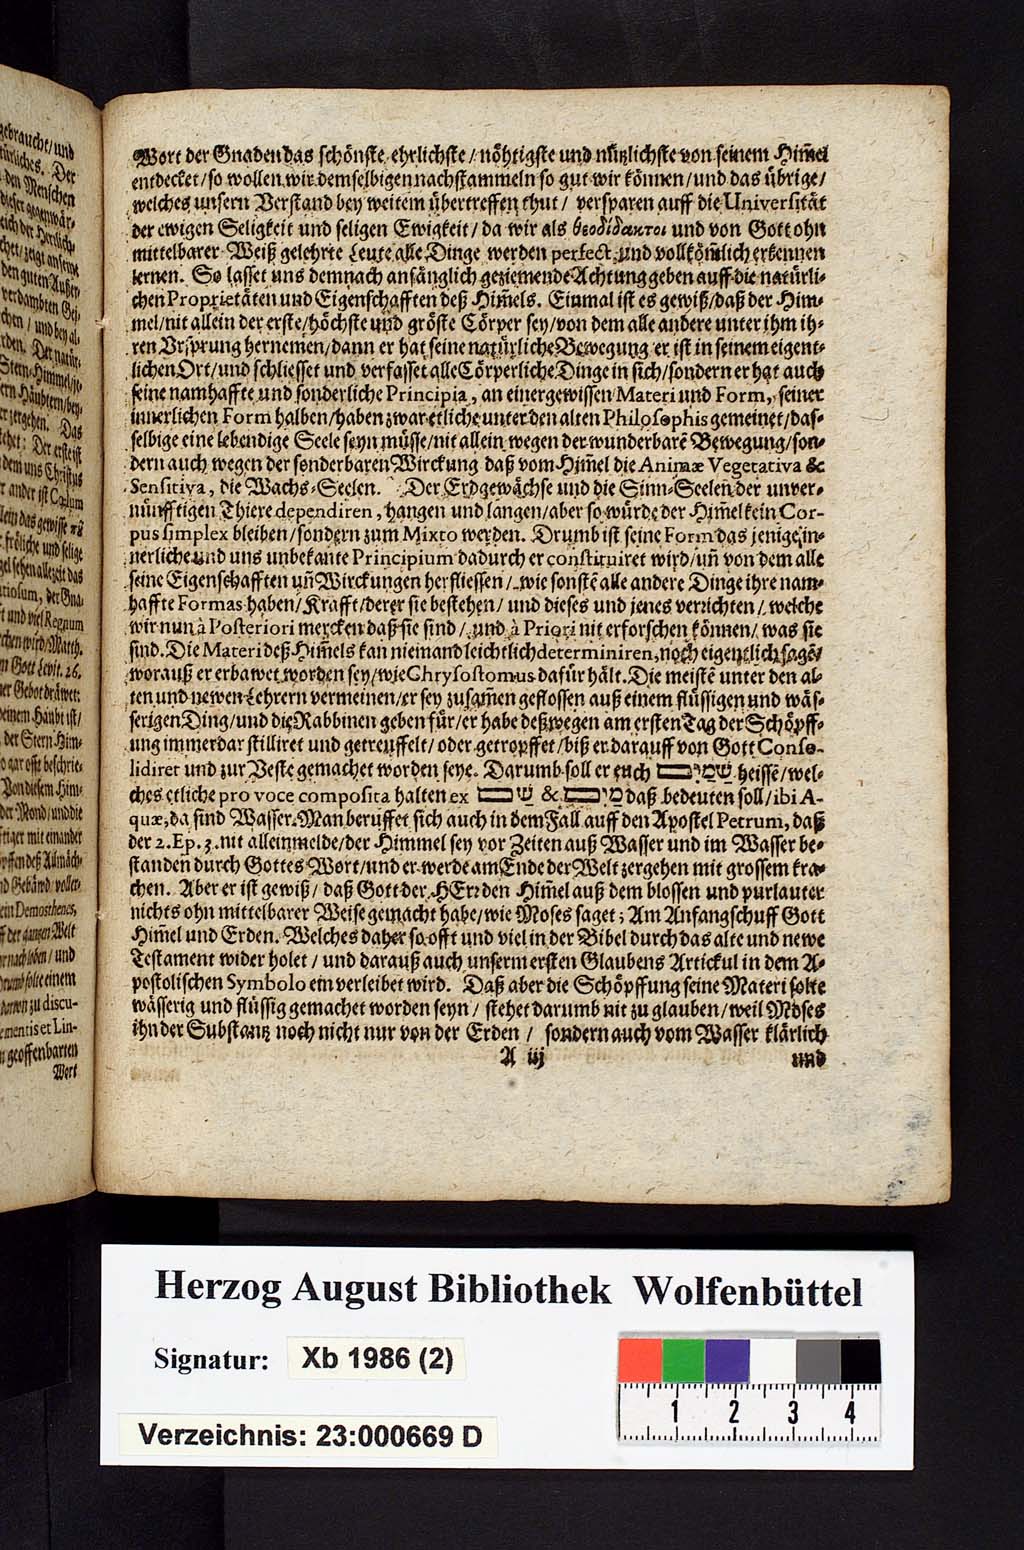 gebraucht/und
türliches. Der
den Menschen
dieser gegenwär-
eich der Herrlich-
chet/zeigt anseine
den guten Außen
verdambten Gei-
chen / und bey al-
rden. Der natür-
Stern-Himmel/je-
ern Häubtern/bey-
er zergehen. Das
tehet: Der erste ist
dem uns Christus
r ander ist Cœlum
llein das gewisse
frölige und selige
gel sehen allezeit das
riosum, der Gna-
t und viel Regnum
chen wird/Matth.
n Gott Levit. 26.
er Gebot dräwet:
einem Häubt ist/
der Stern Him-
o gar offt beschrie-
Von diesem Him-
der Mond/und die
ftiger mit einander
pffen deß Allmäch-
nd Gebäwd/voller
ein Demosthenes,
ff der gantzen Welt
r nach loben/ und
Drumb solte einem
darvon zu discu-
ementis et Lin-
n geoffenbarten
Wort
Wort der Gnaden das schönste, ehrlichste / nöhtigste und nützlichste von seinem Him̃el
entdecket/so wollen wir demselbigen nachstammeln so gut wir können/und das übrige/
welches unsern Verstand bey weitem übertreffen thut/ versparen auff die Universität
der ewigen Seligkeit und seligen Ewigkeit/ da wir als θεοδίδακτοι und von Gott ohn
mittelbarer Weiß gelehrte Leute alle Dinge werden perfect und vollköm̃lich erkennen
lernen. So lasset uns demnach anfänglich geziemende Achtung geben auff die natürli-
chen Proprietäten und Eigenschafften deß Him̃els. Einmal ist es gewiß/daß der Him-
mel/nit allein der erste/höchste und gröste Cörper sey/von dem alle andere unter ihm ih-
ren Ursprung hernemen/dann er hat seine natürliche Bewegung er ist in seinem eigent-
lichen Ort/und schliesset und verfasset alle Cörperliche Dinge in sich/sondern er hat auch
seine namhaffte und sonderliche Principia, an einer gewissen Materi und Form, seiner
innerlichen Form halben/haben zwar etliche unter den alten Philosophis gemeinet/das-
selbige eine lebendige Seele seyn müsse/nit allein wegen der wunderbarẽ Bewegung/son-
dern auch wegen der sonderbaren Wirckung daß vom Him̃el die Animæ Vegetativa &
Sensitiva, die Wachs-Seelen. Der Erdgewächse und die Sinn-Seelen der unver-
nünfftigen Thiere dependiren, hangen und langen/aber so würde der Him̃el kein Cor-
pus simplex bleiben/sondern zum Mixto werden. Drumb ist seine Form das jenige in-
nerliche und uns unbekante Principium dadurch er constituiret wird/uñ von dem alle
seine Eigenschafften uñ Wirckungen herfliessen/ wie sonstẽ alle andere Dinge ihre nam-
haffte Formas haben/ Krafft/derer sie bestehen/ und dieses und jenes verichten/ welche
wir nun à Posteriori mercken daß sie sind/ und à Priori nit erforschen können/ was sie
sind. Die Materi deß Him̃els kan niemand leichtlich determiniren, noch eigentlich sagẽ/
worauß er erbawet worden sey/wie Chrysostomus dafür hält. Die meistẽ unter den al-
ten und newen Lehrern vermeinen/er sey zusam̃en geflossen auß einem flüssigen und wäs-
serigen Ding/und die Rabbinen geben für/er habe deßwegen am ersten Tag der Schöpff-
ung immerdar stilliret und getreuffelt/ oder getropffet/biß er darauff von Gott Conso-
lidiret und zur Veste gemachet worden seye. Darumb soll er euch שָׁמַיִם heissẽ/wel-
ches etliche pro voce composita halten ex שָׁם & מַיִם daß bedeuten soll/ibi A-
quæ, da sind Wasser. Man beruffet sich auch in dem Fall auff den Apostel Petrum, daß
der 2. Ep. 3. nit allein melde/der Himmel sey vor Zeiten auß Wasser und im Wasser be-
standen durch Gottes Wort/und er werde am Ende der Welt zergehen mit grossem kra-
chen. Aber er ist gewiß/ daß Gott der HErr den Him̃el auß dem blossen und purlauter
nichts ohn mittelbarer Weise gemacht habe/wie Moses saget; Am Anfang schuff Gott
Him̃el und Erden. Welches daher so offt und viel in der Bibel durch das alte und newe
Testament wider holet / und darauß auch unserm ersten Glaubens Artickul in dem A-
postolischen Symbolo ein verleibet wird. Daß aber die Schöpffung seine Materi solte
wässerig und flüssig gemachet worden seyn/ stehet darumb nit zu glauben/weil Moses
ihn der Substantz noch nicht nur von der Erden / sondern auch vom Wasser klärlich
A iij
und
Herzog August Bibliothek Wolfenbüttel
Signatur: Xb 1986 (2)
Verzeichnis: 23:000669 D
1 2 3 4